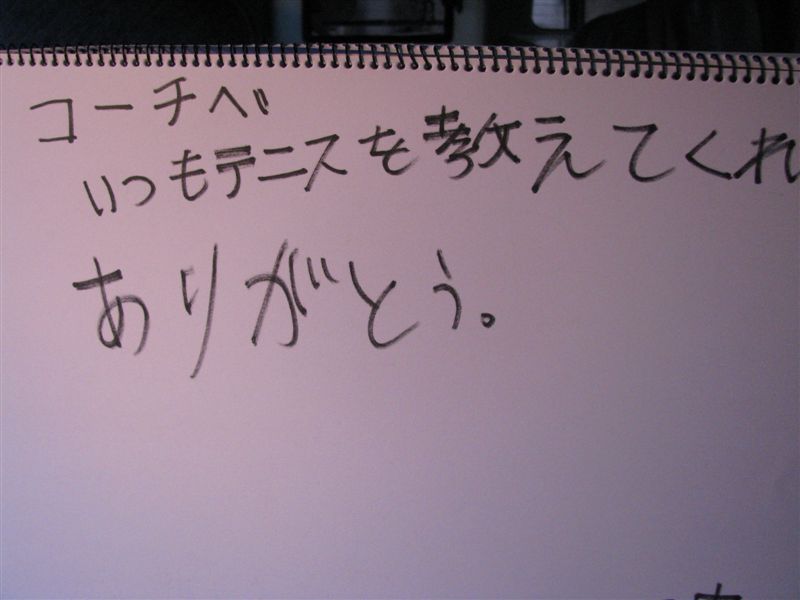 コーチへ
いつもテニスを教えてくれ
ありがとう。